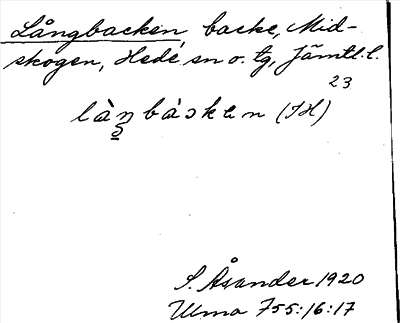 Långbacken, backe, Mid-
skogen, Hede sn o. tg, Jämtl. l.
23
làŋ̠bàsken (IH)
S. Åsander 1920
Ulma 755:16:17